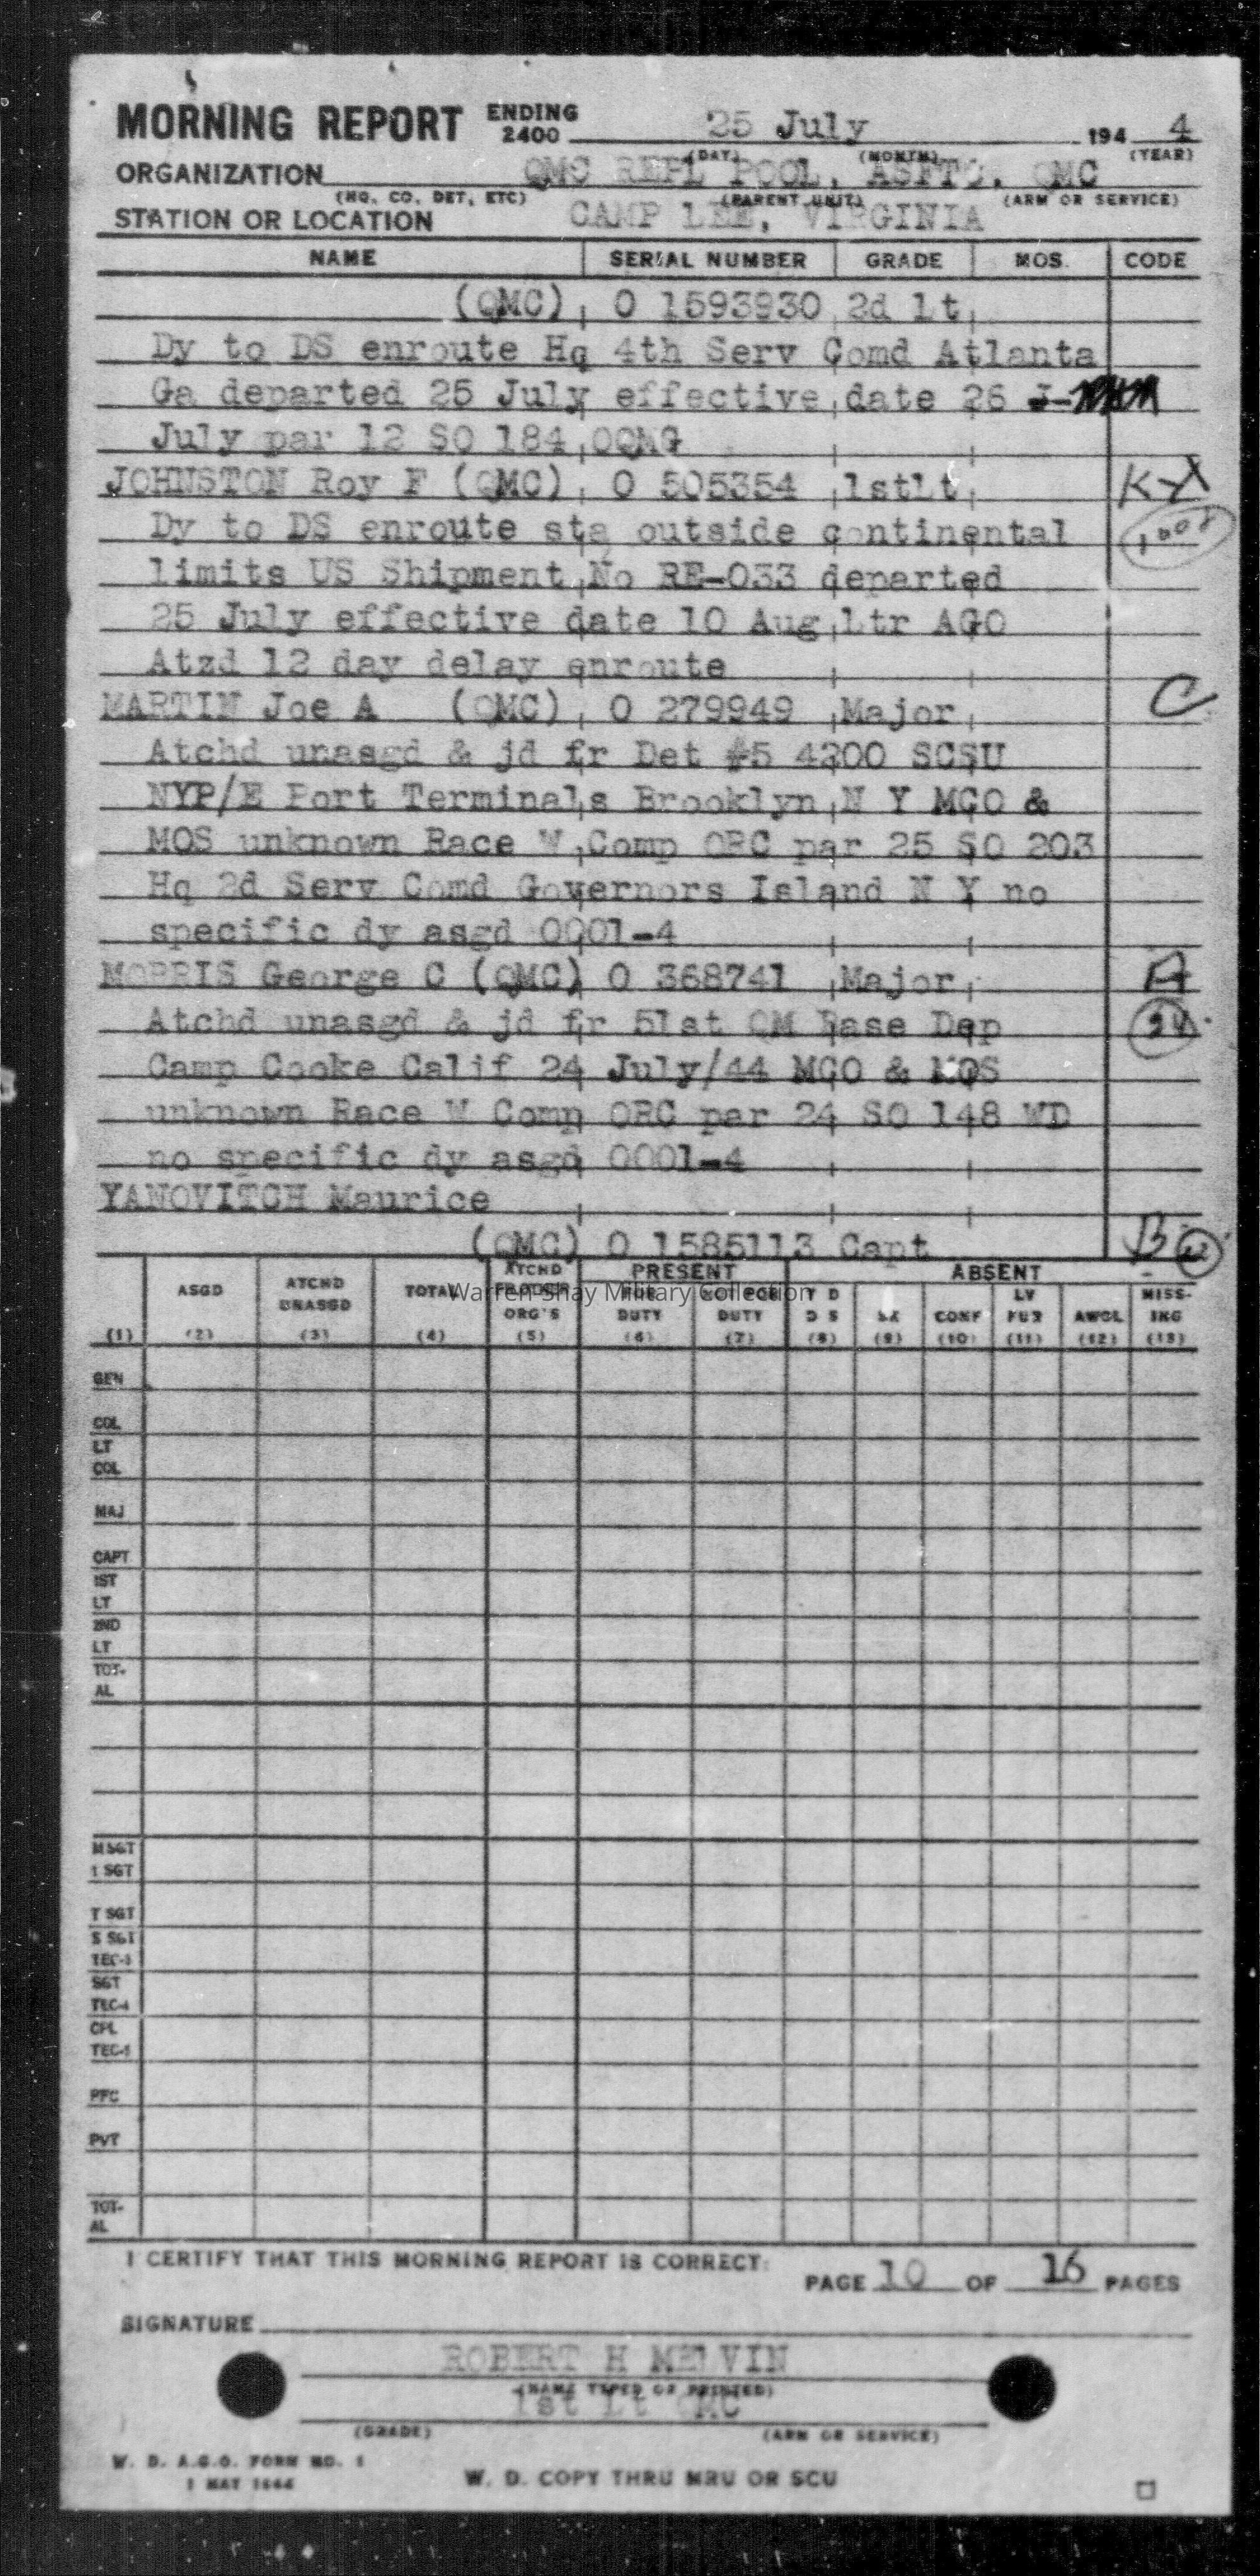 MORNING REPORT ENDING 2400 25 July 194 4
(DAY) (MONTH) (YEAR)
ORGANIZATION QMC REPL POOL, ASFTC, QMC
(HQ, CO, DET, ETC) (PARENT UNIT) (ARM OR SERVICE)
STATION OR LOCATION CAMP LEE, VIRGINIA
NAME SERIAL NUMBER GRADE MOS. CODE
(QMC) O 1593930 2d Lt
Dy to DS enroute Hq 4th Serv Comd Atlanta
Ga departed 25 July effective date 26
July par 12 SO 184 OQMG
JOHNSTON Roy F (QMC) O 505354 1stLt
Dy to DS enroute sta outside continental
limits US Shipment No RE-033 departed
25 July effective date 10 Aug Ltr AGO
Atzd 12 day delay enroute
MARTIN Joe A (QMC) O 279949 Major C
Atchd unasgd & jd fr Det #5 4200 SCSU
NYP/E Port Terminals Brooklyn N Y MCO &
MOS unknown Race W Comp ORC par 25 SO 203
Hq 2d Serv Comd Governors Island N Y no
specific dy asgd 0001-4
MORRIS George C (QMC) O 368741 Major A
Atchd unasgd & jd fr 51st QM Base Dep
Camp Cooke Calif 24 July/44 MCO & MOS
unknown Race W Comp ORC par 24 SO 148 WD
no specific dy asgd 0001-4
YANOVITCH Maurice
(QMC) O 1585113 Capt B
ASGD ATCHD UNASGD TOTAL ATCHD FR OTHER ORG'S PRESENT FOR DUTY NOT FOR DUTY ABSENT T D D S SK CONF LV FUR AWOL MISS-ING
(1) (2) (3) (4) (5) (6) (7) (8) (9) (10) (11) (12) (13)
Warren Shay Military Collection
GEN
COL
LT
COL
MAJ
CAPT
1ST
LT
2ND
LT
TOT-
AL
M SGT
1 SGT
T SGT
S SGT
TEC-3
SGT
TEC-4
CPL
TEC-5
PFC
PVT
TOT-
AL
I CERTIFY THAT THIS MORNING REPORT IS CORRECT:
PAGE 10 OF 16 PAGES
SIGNATURE
ROBERT H MELVIN
(NAME TYPED OR PRINTED)
1st Lt QMC
(GRADE) (ARM OR SERVICE)
W. D. A.G.O. FORM NO. 1
1 MAY 1944
W. D. COPY THRU MRU OR SCU